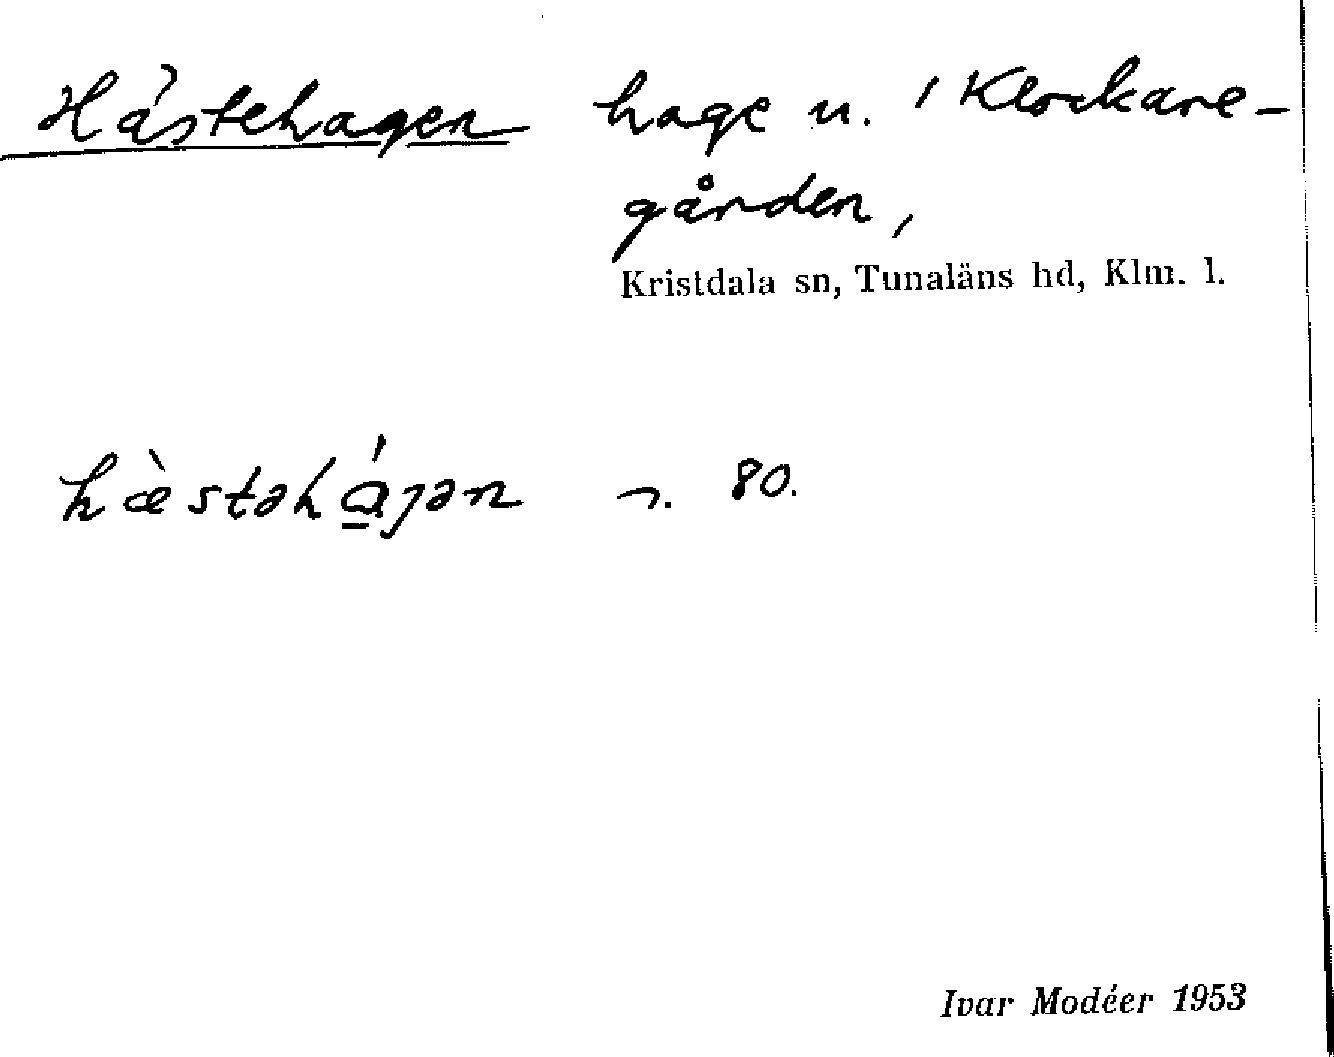 Hästehagen hage u. 1 Klockare-
gården,
Kristdala sn, Tunaläns hd, Klm. l.
hæ̀stəhɑ̱́ȷən n. 80.
Ivar Modéer 1953